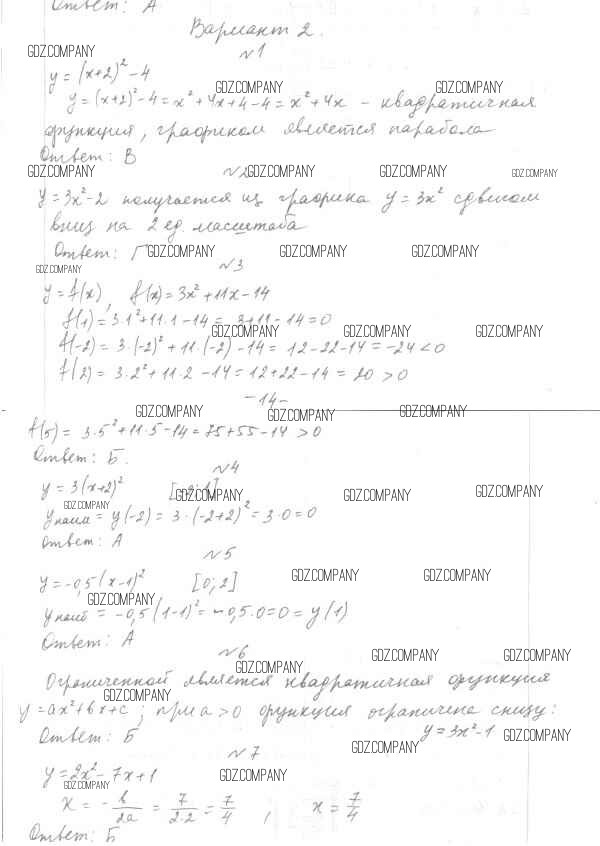 Ответ: А
Вариант 2.
№1
GDZ.COMPANY
y = (x+2)² - 4
GDZ.COMPANY GDZ.COMPANY
y = (x+2)² - 4 = x² + 4x + 4 - 4 = x² + 4x - квадратичная
функция, графиком является парабола
Ответ: В
GDZ.COMPANY №2 GDZ.COMPANY GDZ.COMPANY GDZ.COMPANY
y = 3x² - 2 получается из графика y = 3x² сдвигом
вниз на 2 ед. масштаба
Ответ: Г GDZ.COMPANY GDZ.COMPANY GDZ.COMPANY
GDZ.COMPANY №3
y = f(x), f(x) = 3x² + 11x - 14
f(1) = 3·1² + 11·1 - 14 = 3 + 11 - 14 = 0
GDZ.COMPANY GDZ.COMPANY GDZ.COMPANY
f(-2) = 3·(-2)² + 11·(-2) - 14 = 12 - 22 - 14 = -24 < 0
f(2) = 3·2² + 11·2 - 14 = 12 + 22 - 14 = 20 > 0
- 14 -
GDZ.COMPANY GDZ.COMPANY GDZ.COMPANY
f(5) = 3·5² + 11·5 - 14 = 75 + 55 - 14 > 0
Ответ: Б.
№4
y = 3(x+2)²
GDZ.COMPANY GDZ.COMPANY GDZ.COMPANY
GDZ.COMPANY
yнаим = y(-2) = 3·(-2+2)² = 3·0 = 0
Ответ: А
№5
y = -0,5(x-1)² [0; 2] GDZ.COMPANY GDZ.COMPANY
GDZ.COMPANY
yнаиб = -0,5(1-1)² = -0,5·0 = 0 = y(1)
Ответ: А
№6 GDZ.COMPANY GDZ.COMPANY
GDZ.COMPANY
Ограниченной является квадратичная функция
GDZ.COMPANY
y = ax² + bx + c; при a > 0 функция ограничена снизу:
Ответ: Б y = 3x² - 1 GDZ.COMPANY
№7 GDZ.COMPANY
y = 2x² - 7x + 1 GDZ.COMPANY
GDZ.COMPANY
x = -b/2a = 7/2·2 = 7/4, x = 7/4
Ответ: Б